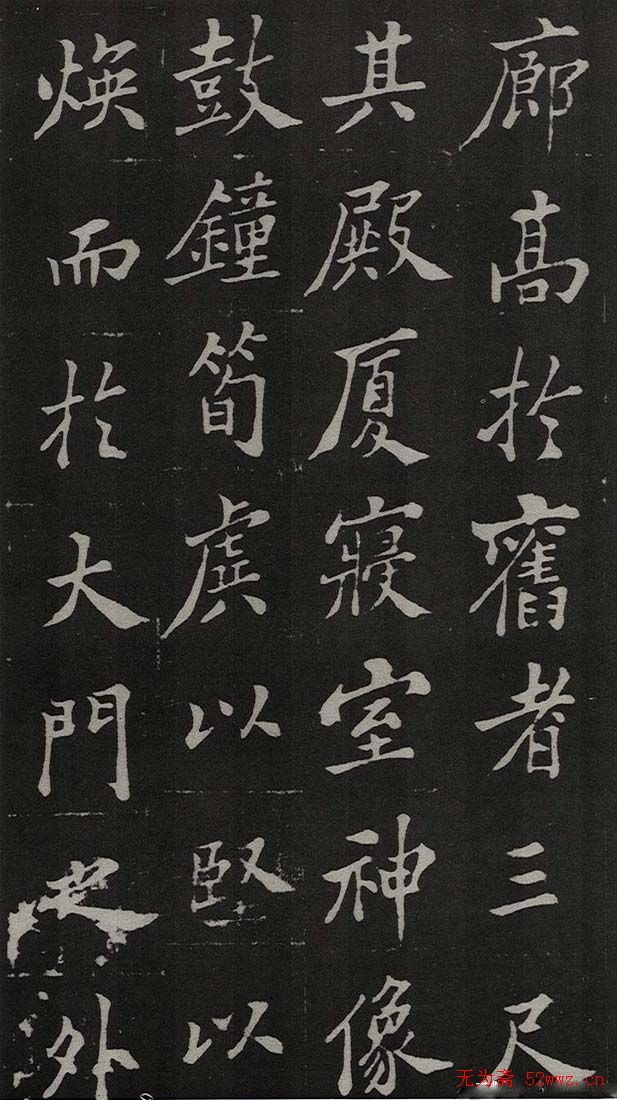 廊高於舊者三尺
其殿厦寢室神像
鼓鐘筍虡以堅以
煥而於大門之外
无为斋 52wwz.cn